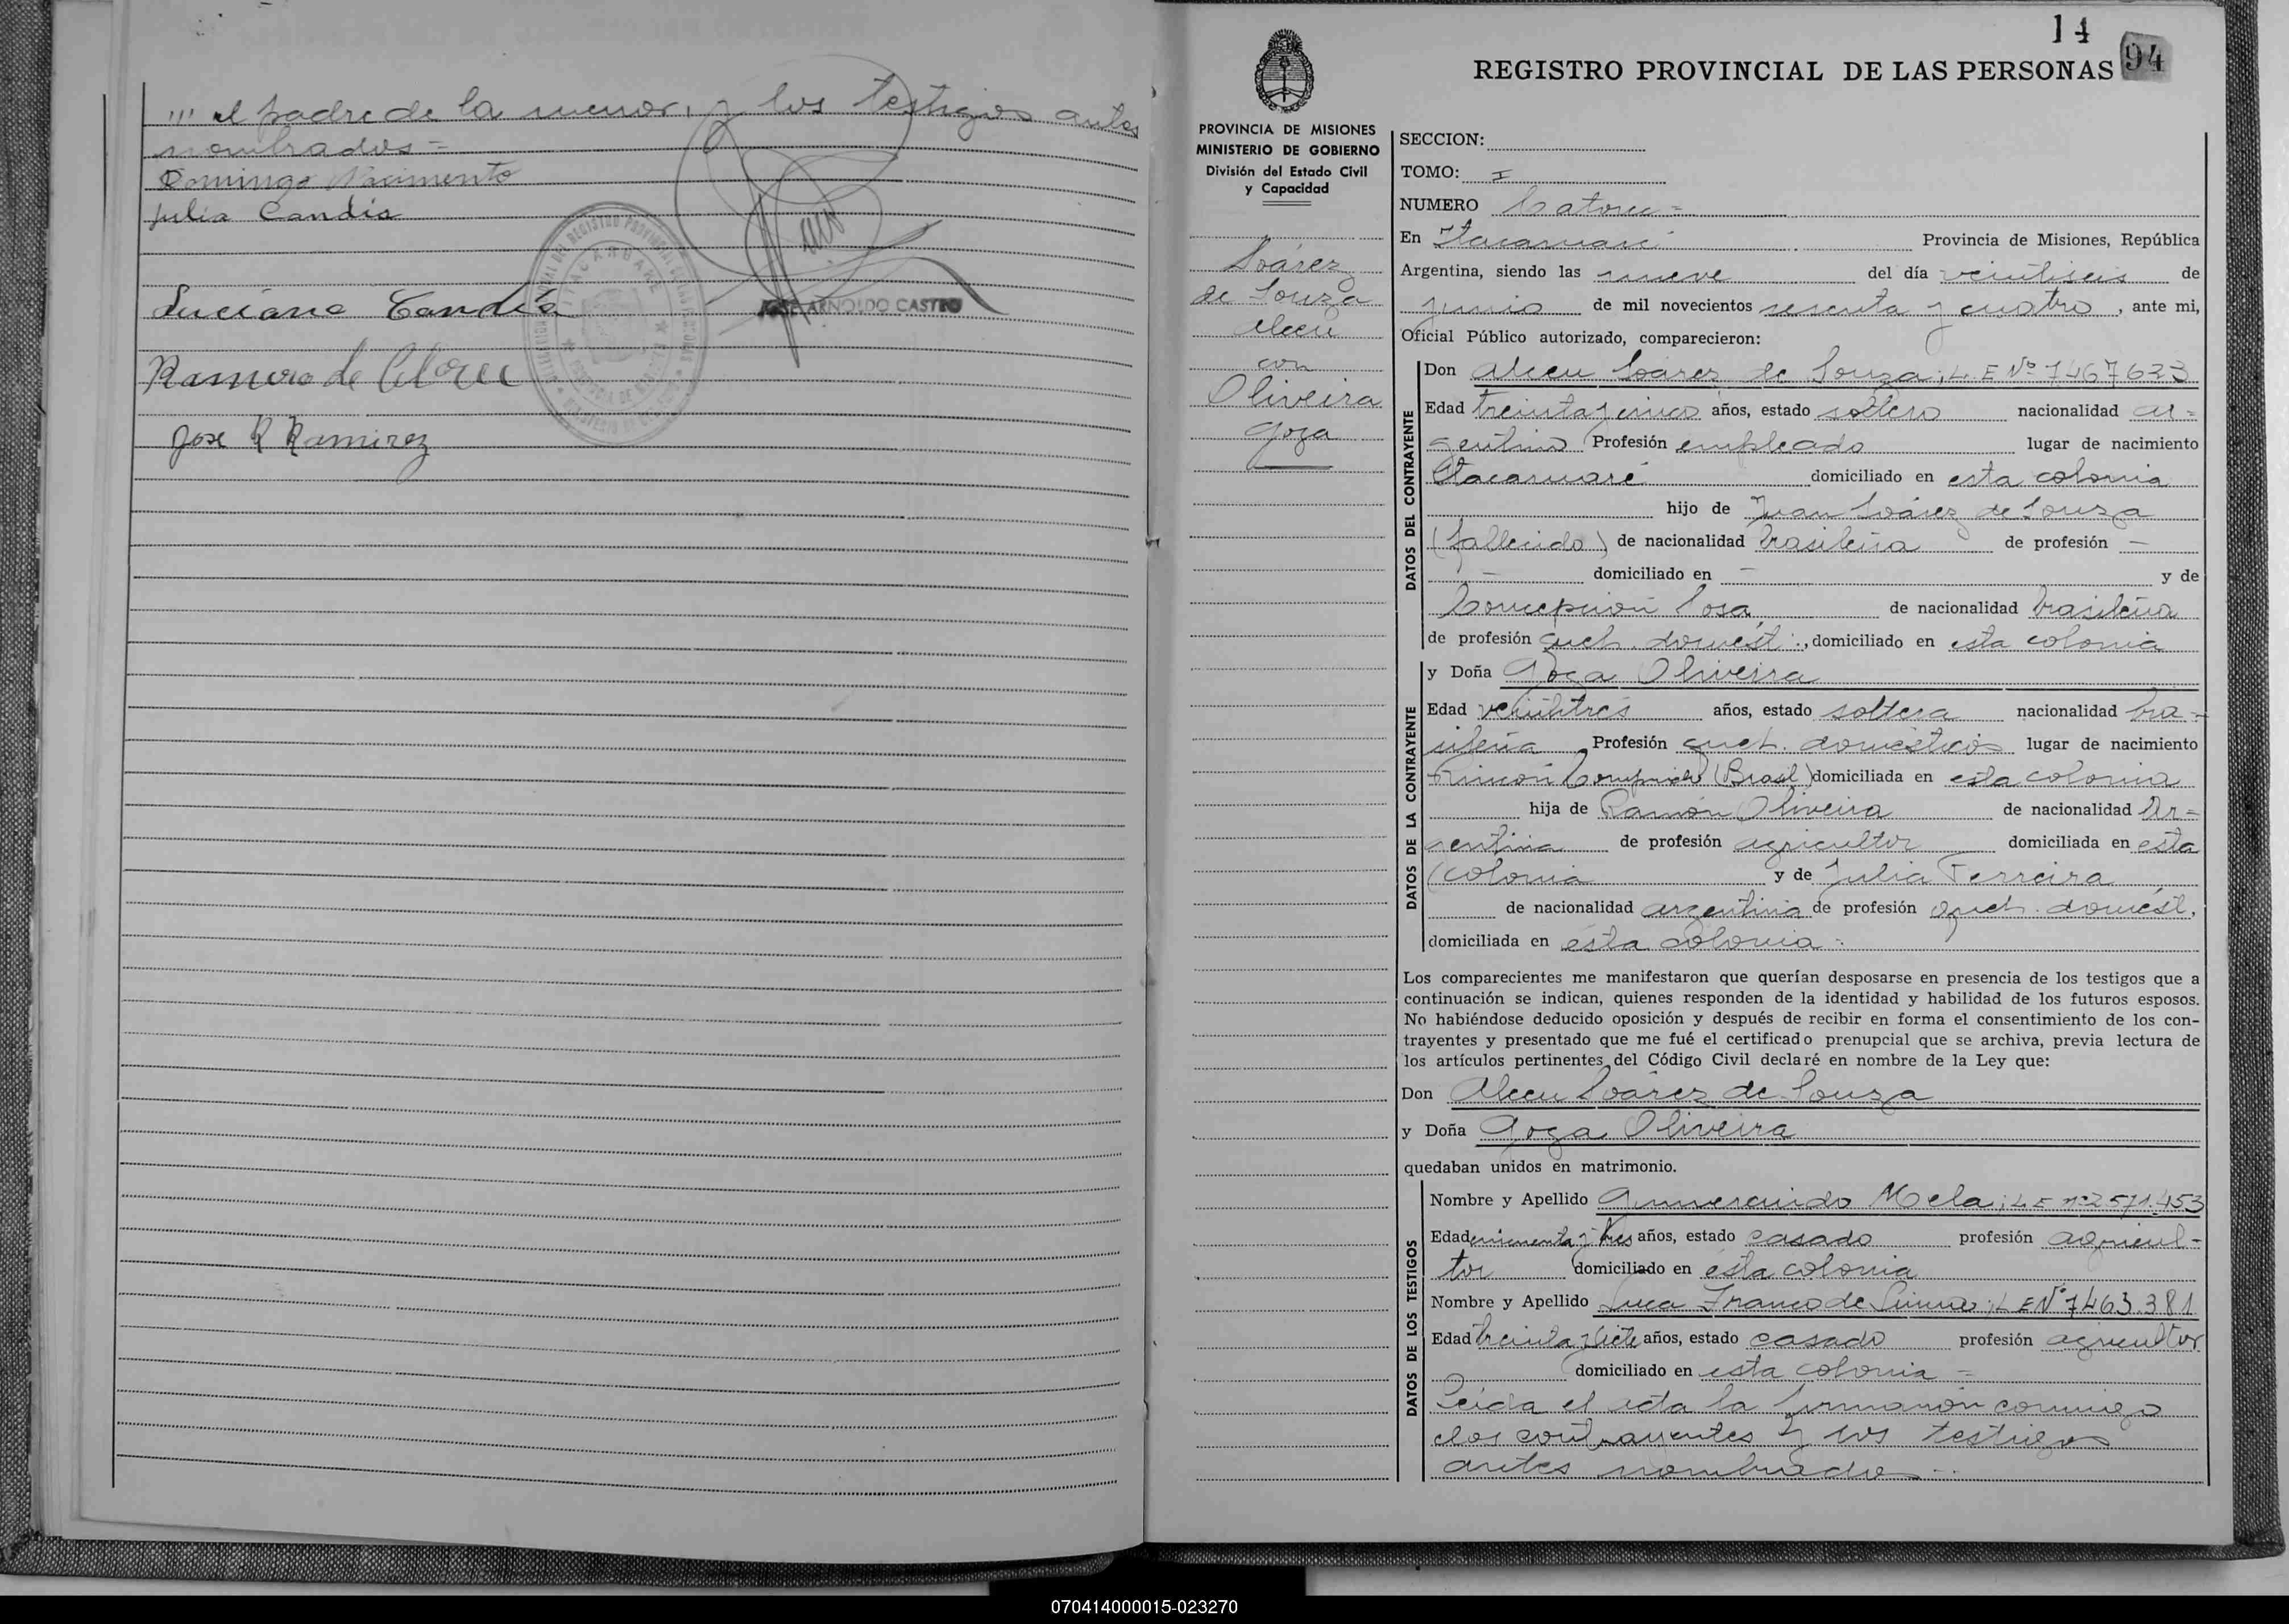 ''' el padre de la menor, y los testigos antes
nombrados =
Domingo Nacimento
Julia Candia
Luciano Candia
JOSE ARNOLDO CASTRO
Ramiro de
Jose R Ramirez
14
94
REGISTRO PROVINCIAL DE LAS PERSONAS
PROVINCIA DE MISIONES
MINISTERIO DE GOBIERNO
División del Estado Civil
y Capacidad
Soárez
de Souza
Alceu
con
Oliveira
Goza
SECCION:
TOMO: I
NUMERO Catorce =
En Itacaruaré Provincia de Misiones, República
Argentina, siendo las nueve del día veintiseis de
junio de mil novecientos sesenta y cuatro, ante mi,
Oficial Público autorizado, comparecieron:
DATOS DEL CONTRAYENTE
Don Alceu Soárez de Souza; L E Nº 7467633
Edad treinta y cinco años, estado soltero nacionalidad ar=
gentino Profesión empleado lugar de nacimiento
Itacaruaré domiciliado en esta colonia
hijo de Juan Soárez de Souza
(fallecido) de nacionalidad brasileña de profesión —
— domiciliado en — y de
Concepción Sosa de nacionalidad brasileña
de profesión queh. domést:, domiciliado en esta colonia
DATOS DE LA CONTRAYENTE
y Doña Goza Oliveira
Edad veintitrés años, estado soltera nacionalidad bra=
sileña Profesión queh. domésticos lugar de nacimiento
Rincón Comprido (Brasil) domiciliada en esta colonia
hija de Ramón Oliveira de nacionalidad Ar=
gentina de profesión agricultor domiciliada en esta
colonia y de Julia Ferreira
de nacionalidad argentina de profesión queh. domést,
domiciliada en esta colonia.
Los comparecientes me manifestaron que querían desposarse en presencia de los testigos que a
continuación se indican, quienes responden de la identidad y habilidad de los futuros esposos.
No habiéndose deducido oposición y después de recibir en forma el consentimiento de los con-
trayentes y presentado que me fué el certificado prenupcial que se archiva, previa lectura de
los artículos pertinentes del Código Civil declaré en nombre de la Ley que:
Don Alceu Soárez de Souza
y Doña Goza Oliveira
quedaban unidos en matrimonio.
DATOS DE LOS TESTIGOS
Nombre y Apellido Gumercindo Mela; L E nº 2571.453
Edad cincuenta y tres años, estado casado profesión agricul-
tor domiciliado en esta colonia
Nombre y Apellido Luca Franco de Lima; L E Nº 7463.381
Edad treinta y siete años, estado casado profesión agricultor
domiciliado en esta colonia =
Leída el acta la firmaron conmigo
los contrayentes y los testigos
antes nombrados
070414000015-023270